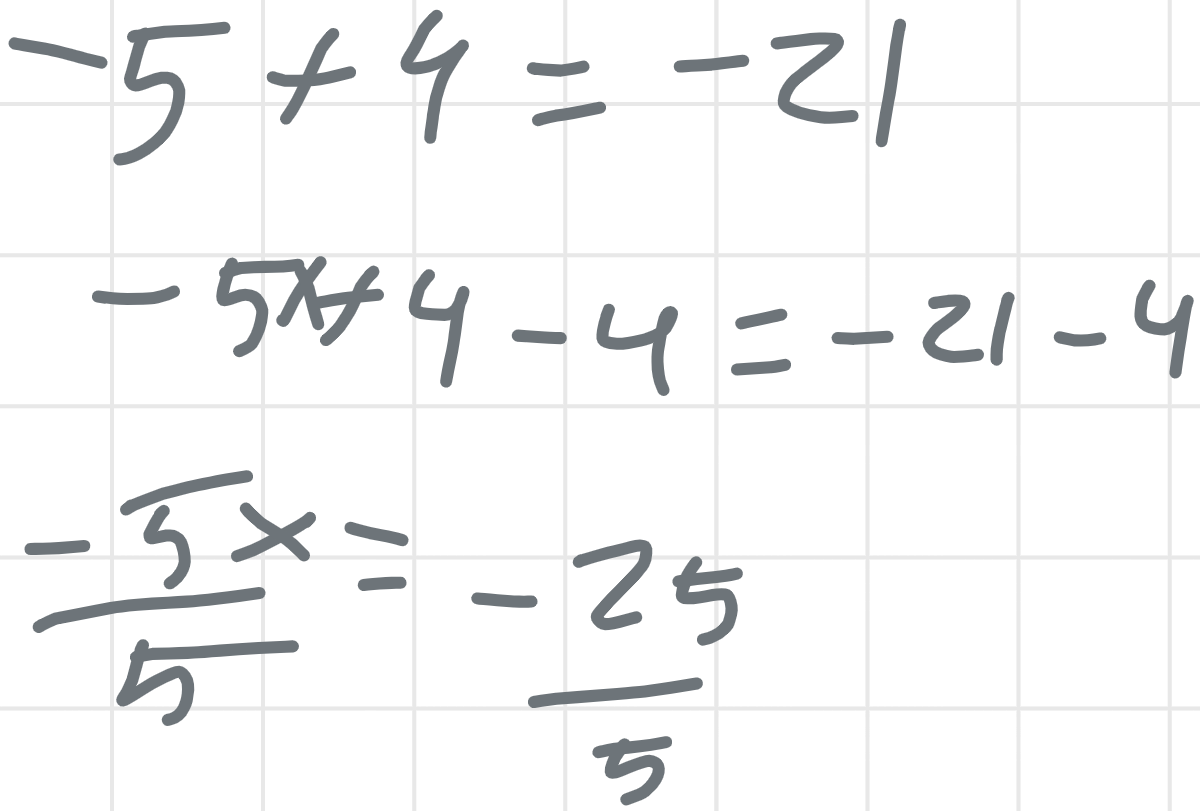 -5 + 4 = -21
-5x + 4 - 4 = -21 - 4
-5x/5 = -25/5